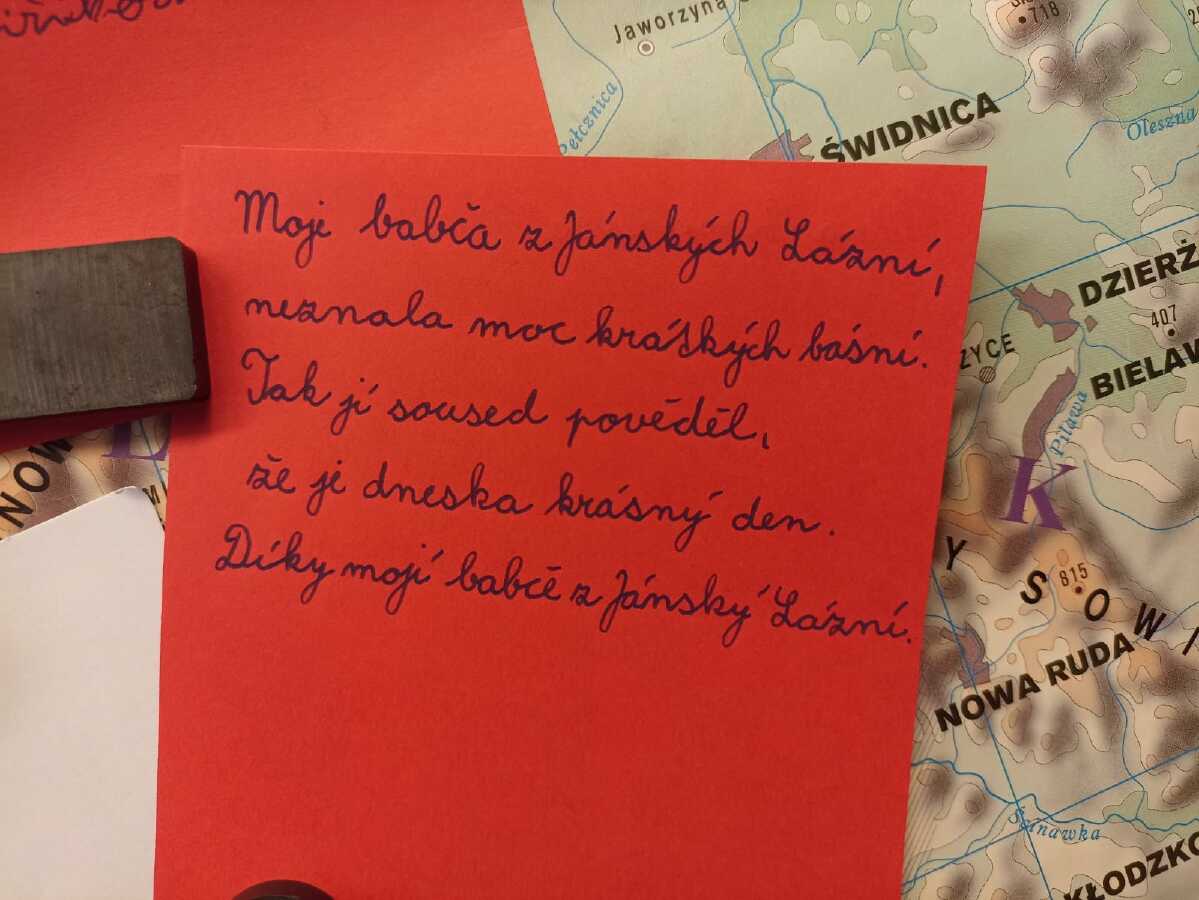 Jaworzyna
718
Pełcznica
ŚWIDNICA
Oleszna
Moje babča z Jánských Lázní,
neznala moc krátkých básní.
Tak jí soused pověděl,
že je dneska krásný den.
Díky mojí babče z Jánský Lázní.
DZIERŻ
407
ZYCE
BIELAW
Piława
NOW
L
M
K
Y SOWI
815
NOWA RUDA
Ścinawka
KŁODZKO